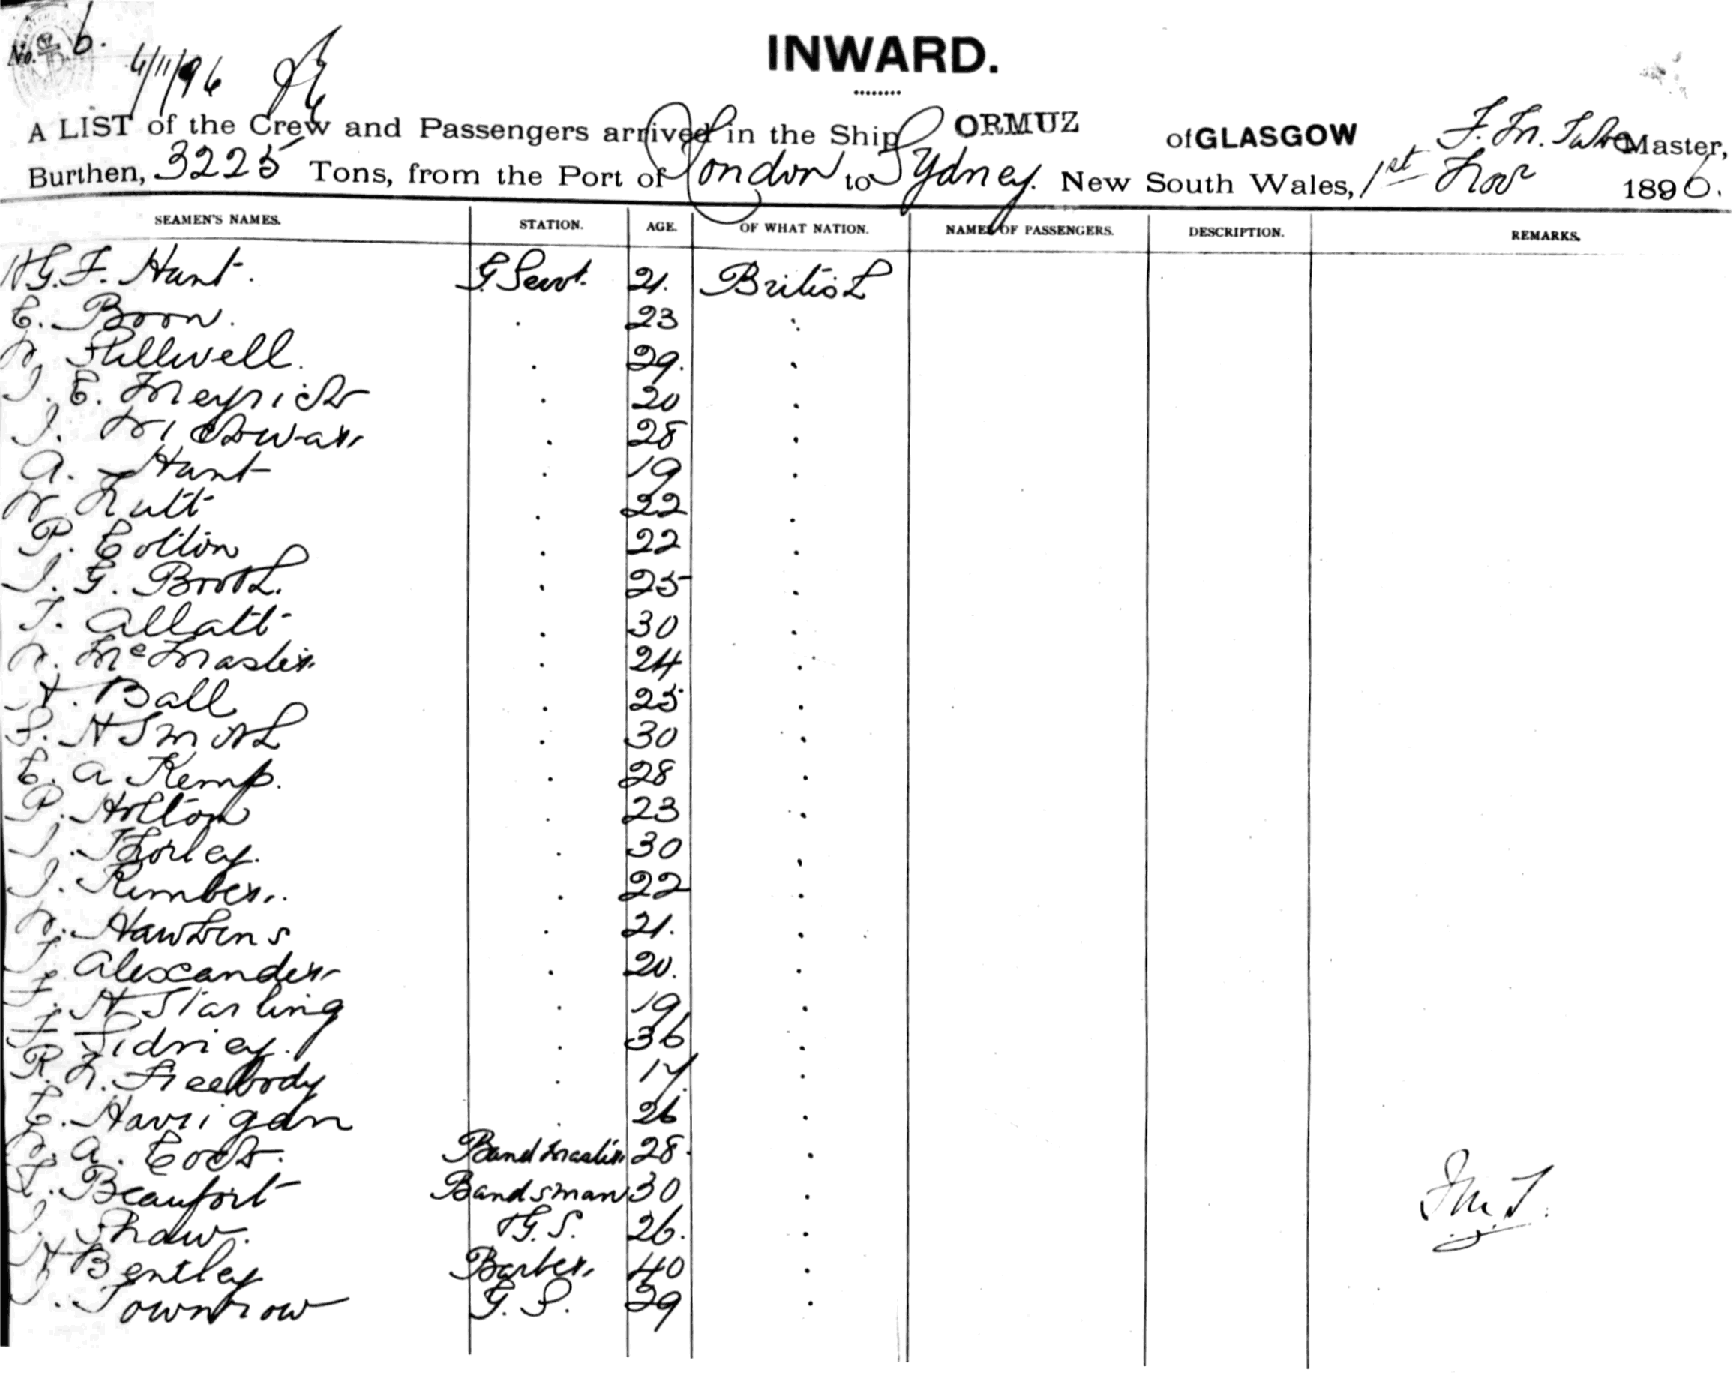 No. 6.
4/11/96
INWARD.
A LIST of the Crew and Passengers arrived in the Ship ORMUZ of GLASGOW F. M. Master,
Burthen, 3225 Tons, from the Port of London to Sydney. New South Wales, 1st Nov 1896.
SEAMEN'S NAMES. STATION. AGE. OF WHAT NATION. NAMES OF PASSENGERS. DESCRIPTION. REMARKS.
H G. F. Hunt. G. Servt. 21. British
E. Boon. 23
W. Stillwell. 29.
J. E. Meyrick 20
J. 28
A. Hunt 19
W. Nutt 22
P. Cotton 22
J. G. Booth. 25
T. Allatt 30
W. McMaster 24
H. Ball 25
S. H Smith 30
E. A Kemp. 28
P. Holton 23
J. Thorley. 30
J. Kimber. 22
W. Hawkins 21.
J. Alexander 20.
F. H Starling 19
F. Sidney. 36
R. N. Freebody 17
E. Harrigan 26
W. A. Cock. Bandmaster 28.
T. Beaufort Bandsman 30
J. Shaw. G. S. 26.
H Bentley Barber 40
J. Townrow G. S. 29
F.M.T.